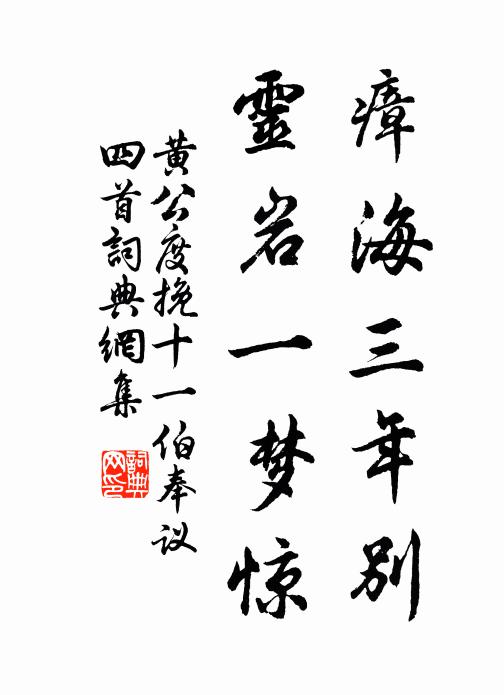 瘴海三年别
靈岩一梦惊
黄公度挽十一伯奉议
四首詞典網集
詞典网印